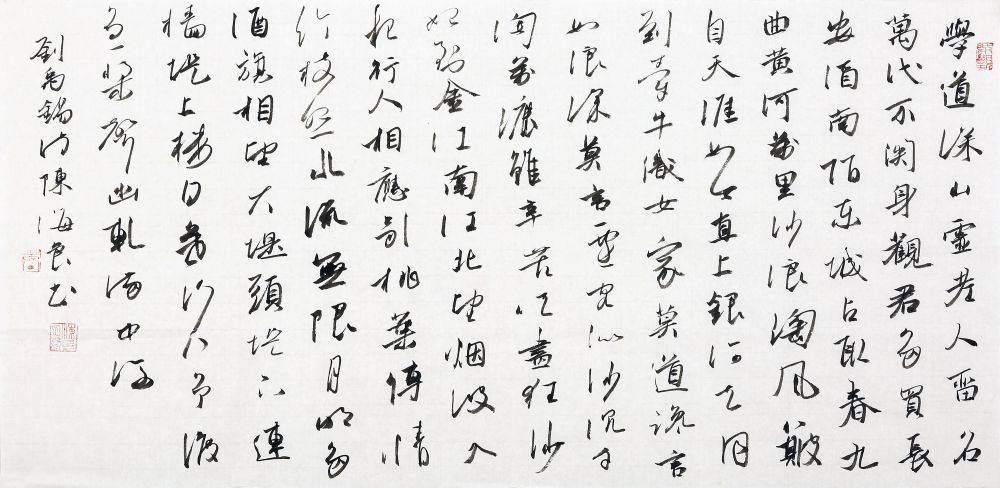 學道深山虛老人留名
萬代不關身勸君多買長
安酒南陌東城占取春九
曲黃河萬里沙浪淘風簸
自天涯如今直上銀河去同
到牽牛織女家莫道讒言
如浪深莫言遷客似沙沉千
淘萬漉雖辛苦吹盡狂沙
始到金江南江北望烟波入
夜行人相應歌桃葉傳情
竹枝怨水流無限月明多
酒旗相望大堤頭堤下連
檣堤上樓日暮行人爭渡
急槳聲幽軋滿中流
劉禹錫詩陳海良書